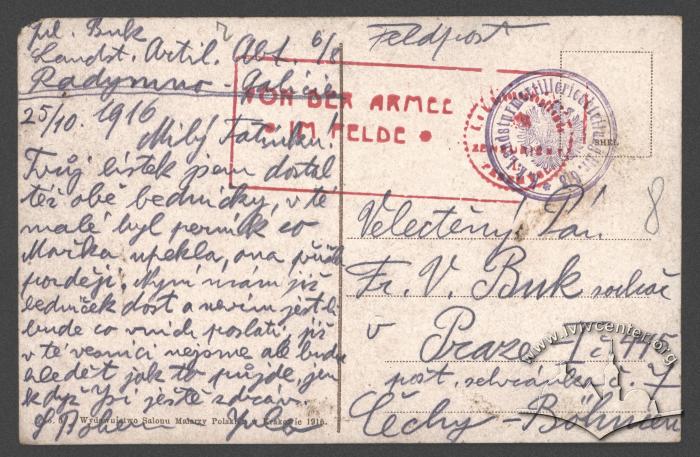 pl. Buk
Landst. Artil. Abt. 6/8
Radymno - Galicie
25/10. 1916
Milý Tatínku!
Tvůj lístek jsem dostal
též obě bedničky, v té
malé byl perník co
Mařka upekla, ona přišla
později. Nyní mám již
bedniček dost a nevím jestli
bude co v nich poslati, již
v té vesnici nejsme ale budu
hledět jak to půjde, jen
když jsi ještě zdráv.
S Bohem
Wydawnictwo Salonu Malarzy Polskich w Krakowie 1916.
Feldpost
VON DER ARMEE
• IM FELDE •
ZENSURIERT
8
Velectěný Pán
Fr. V. Buk sochař
v Praze - I č 445
post. schránka č. 7
Čechy - Böhmen
www.lvivcenter.org